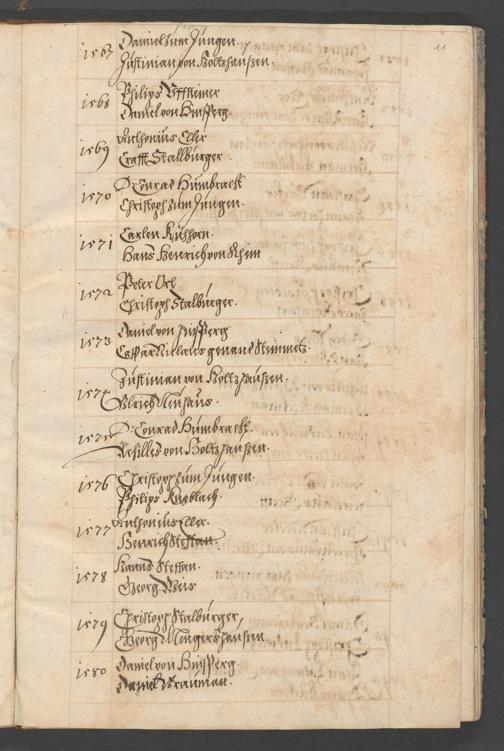 11
1567 Daniel zum Jungen.
Justinian von Holtzhausen.
1568 Philips Uffsteiner
Daniel von Hinsperg.
1569 Anthonius Eller
Crafft Stallburger
1570 D. Conrad Humbracht
Christoph zum Jungen.
1571 Carlen Kühhorn.
Hans Henrich von Rhein
1572 Peter Orl
Christoph Stalburger.
1573 Daniel von Hinsperg
Caspar Niclaus genand Steinmetz.
1574 Justinian von Holtzhausen.
Ulrich Neuhaus.
1575 D. Conrad Humbracht.
Achilles von Holtzhausen.
1576 Christoph zum Jungen.
Philips Knoblach
1577 Anthonius Eller.
Henrich Steffan.
1578 Hanns Steffan.
Georg Weis
1579 Christoph Stalburger,
Georg Mengershausen
1580 Daniel von Hinsperg
Daniel Brauman.